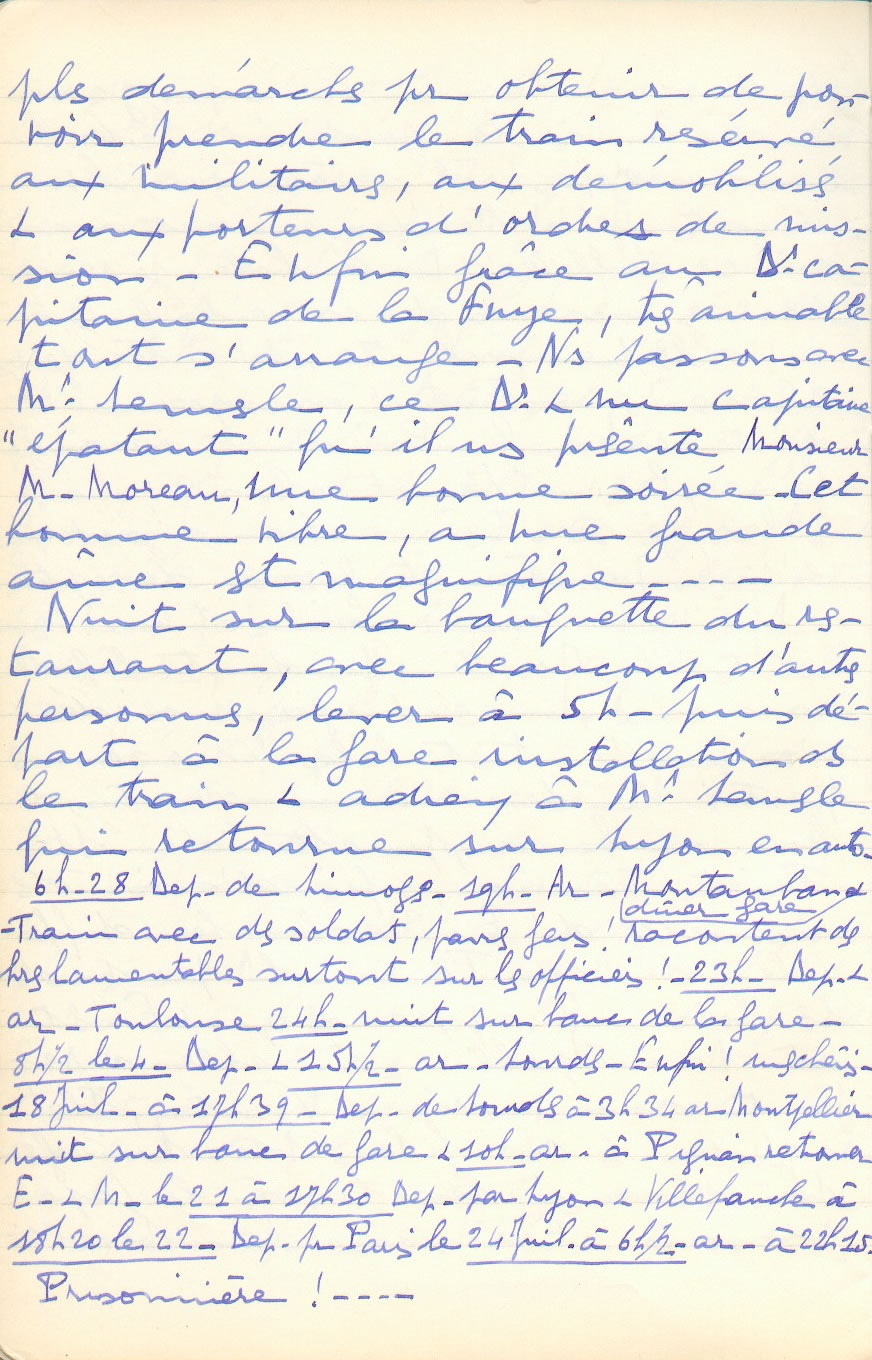 pls démarchs pr obtenir de pou-
voir prendre le train réservé
aux militairs, aux démobilisés
& aux porteurs d'ordres de mis-
sion - Enfin grâce au Dr. ca-
pitaine de la Fuye, trs aimable
tout s'arrange - Ns passons avec
Mr. Lengle, ce Dr. & un capitaine
"épatant" qu'il ns présente Monsieur
M. Moreau, une bonne soirée. Cet
homme vibre, a une grande
âme st magnifique ----
Nuit sur la banquette du rs-
taurant, avec beaucoup d'autrs
personns, lever à 5h - puis dé-
part à la gare installation ds
le train & adieu à Mr. Lengle
qui retourne sur Lyon en auto.
6h-28 Dep. de Limogs - 19h. Ar - Montauban &
dîner gare
- Train avec ds soldats, pauvs gens ! racontent ds
hrs lamentables surtout sur ls officiers ! - 23h - Dep. &
ar - Toulouse 24h - nuit sur banc de la gare -
8h½ le 4 - Dep. & 15h½ - ar - Lourds - Enfin ! ms chéris -
18 Juil. - à 17h39 - Dep. de Lourds à 3h34 ar Montpellier
nuit sur banc de gare & 10h - ar. à Pignan retrouver
E. & M. le 21 à 17h30 Dep. par Lyon & Villefranche à
18h20 le 22 - Dep. pr Paris le 24 Juil. à 6h½ - ar - à 22h15.
Prisonnière ! ----